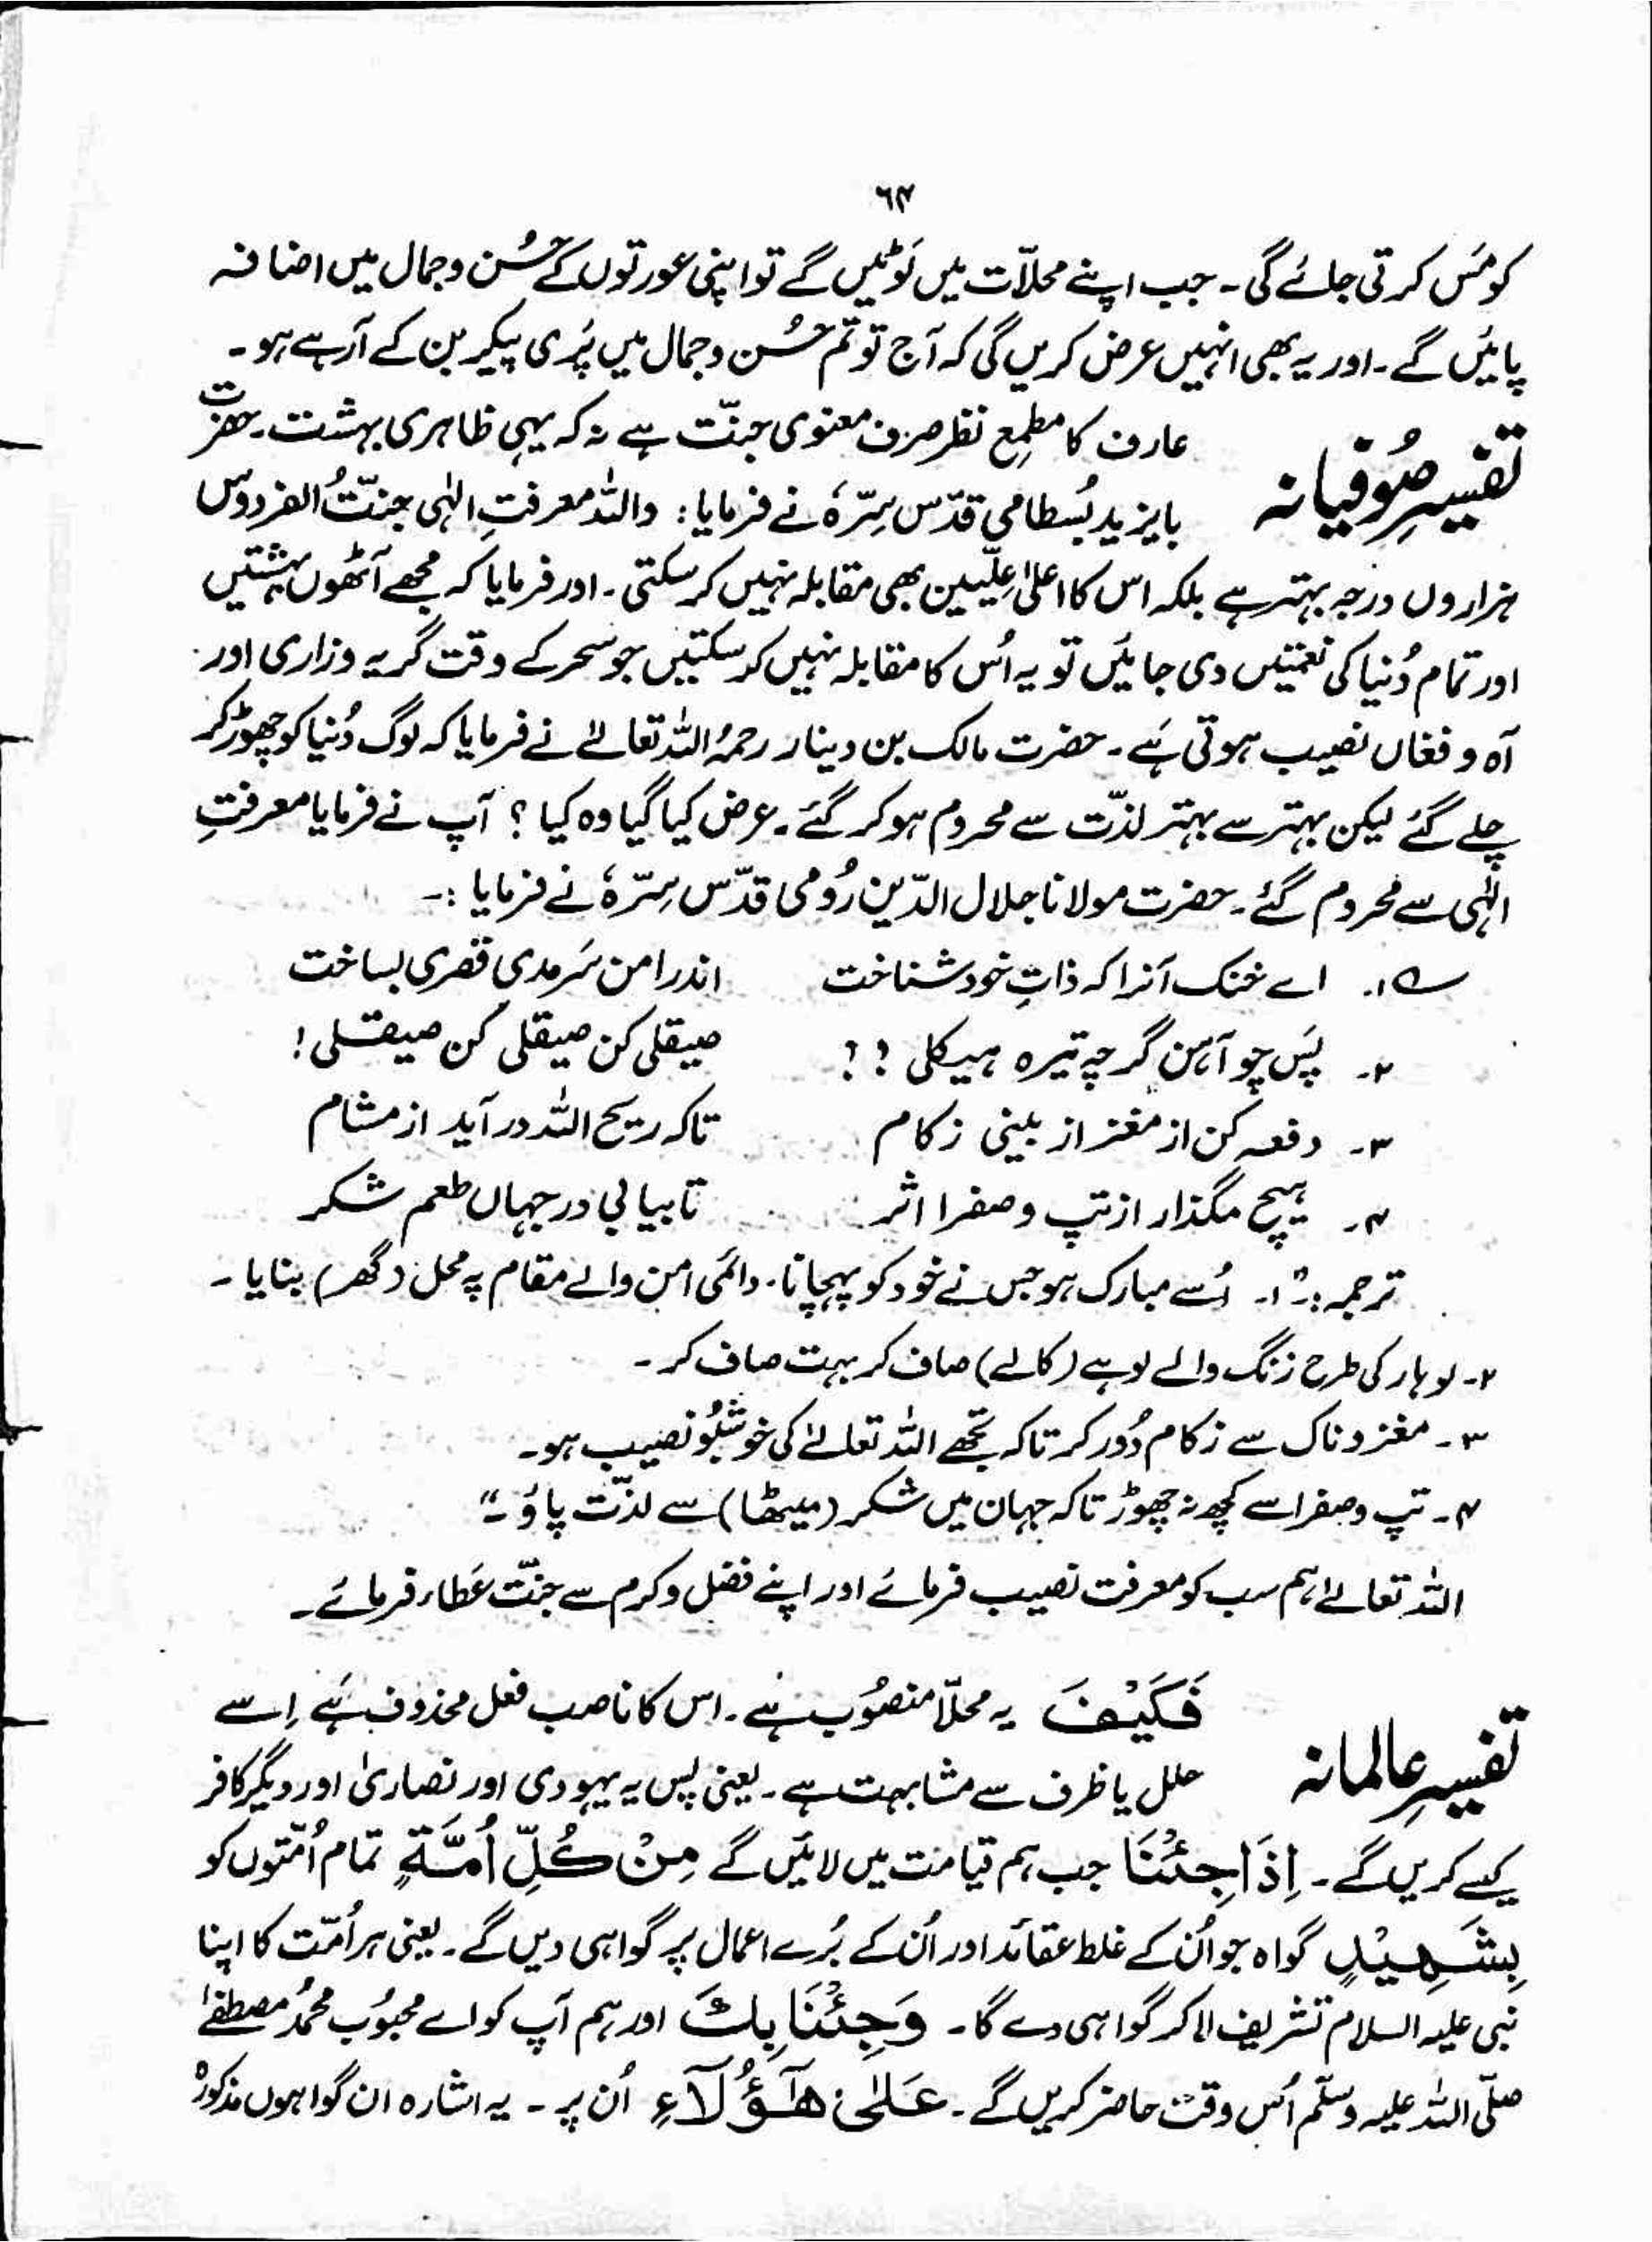 ٦۴
کو مَس کرتی جائے گی۔ جب اپنے محلّات میں لَوٹیں گے تو اپنی عورتوں کے حُسن و جمال میں اضافہ
پائیں گے۔ اور یہ بھی انہیں عرض کریں گی کہ آج تو تم حُسن و جمال میں پَری پیکر بن کے آرہے ہو۔
تفسیرِ صُوفیانہ
عارف کا مطمِع نظر صرف معنوی جنّت ہے نہ کہ یہی ظاہری بہشت۔ حضرت
بایزید بُسطامی قدّس سِرّہٗ نے فرمایا: واللہ معرفتِ الٰہی جنّتُ الفردوس
ہزاروں درجہ بہتر ہے بلکہ اس کا اعلیٰ عِلِّیین بھی مقابلہ نہیں کر سکتی۔ اور فرمایا کہ مجھے آٹھوں بہشتیں
اور تمام دُنیا کی نعمتیں دی جائیں تو یہ اُس کا مقابلہ نہیں کر سکتیں جو سحر کے وقت گریہ و زاری اور
آہ و فغاں نصیب ہوتی ہَے۔ حضرت مالک بن دینار رحمۂ اللہ تعالےٰ نے فرمایا کہ لوگ دُنیا کو چھوڑ کر
چلے گئے لیکن بہتر سے بہتر لذّت سے محروم ہو کر گئے۔ عرض کیا گیا وہ کیا ؟ آپ نے فرمایا معرفتِ
الٰہی سے محروم گئے۔ حضرت مولانا جلال الدّین رُومی قدّس سِرّہٗ نے فرمایا :۔
؎ ۱۔ اے خنک آنرا کہ ذاتِ خود شناخت اندر امن سَرمدی قصری بساخت
۲۔ پَس چو آہن گرچہ تیرہ ہیکلی !! صیقلی کن صیقلی کن صیقلی!
۳۔ دفعہ کن از مغز از بینی زکام تاکہ ریح اللہ در آید از مشام
۴۔ ہیچ مگذار از تپ و صفرا اثر تا بیابی در جہاں طعم شکر
ترجمہ:" ۱۔ اُسے مبارک ہو جس نے خود کو پہچانا۔ دائمی امن والے مقام پہ محل (گھر) بنایا۔
۲۔ لوہار کی طرح زنگ والے لوہے (کالے) صاف کر بہت صاف کر۔
۳۔ مغز و ناک سے زکام دُور کر تاکہ تجھے اللہ تعالےٰ کی خوشبُو نصیب ہو۔
۴۔ تپ و صفرا سے کچھ نہ چھوڑ تاکہ جہان میں شکر (میٹھا) سے لذّت پاؤ۔"
اللہ تعالےٰ ہم سب کو معرفت نصیب فرمائے اور اپنے فضل و کرم سے جنّت عَطاء فرمائے۔
تفسیرِ عالمانہ
فَکَیْفَ یہ محلاً منصُوب ہَے۔ اس کا ناصب فعل محذوف ہَے اِسے
حال یا ظرف سے مشابہت ہے۔ یعنی پس یہ یہودی اور نصاریٰ اور دیگر کافر
کیسے کریں گے۔ اِذَا جِئْنَا جب ہم قیامت میں لائیں گے مِنْ کُلِّ اُمَّۃٍ تمام اُمّتوں کو
بِشَہِیْدٍ گواہ جو اُن کے غلط عقائد اور اُن کے بُرے اعمال پر گواہی دیں گے۔ یعنی ہر اُمّت کا اپنا
نبی علیہ السلام تشریف لا کر گواہی دے گا۔ وَجِئْنَا بِکَ اور ہم آپ کو اے محبوُب محمدُ مصطفےٰ
صلّی اللہ علیہ وسلّم اُس وقت حاضر کریں گے۔ عَلٰی ھٰٓؤُلَآءِ اُن پر۔ یہ اشارہ ان گواہوں مذکورہ